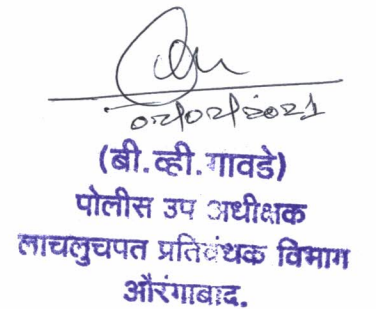 (बी.व्ही.गावडे)
पोलीस उप अधीक्षक
लाचलुचपत प्रतिबंधक विभाग
औरंगाबाद.